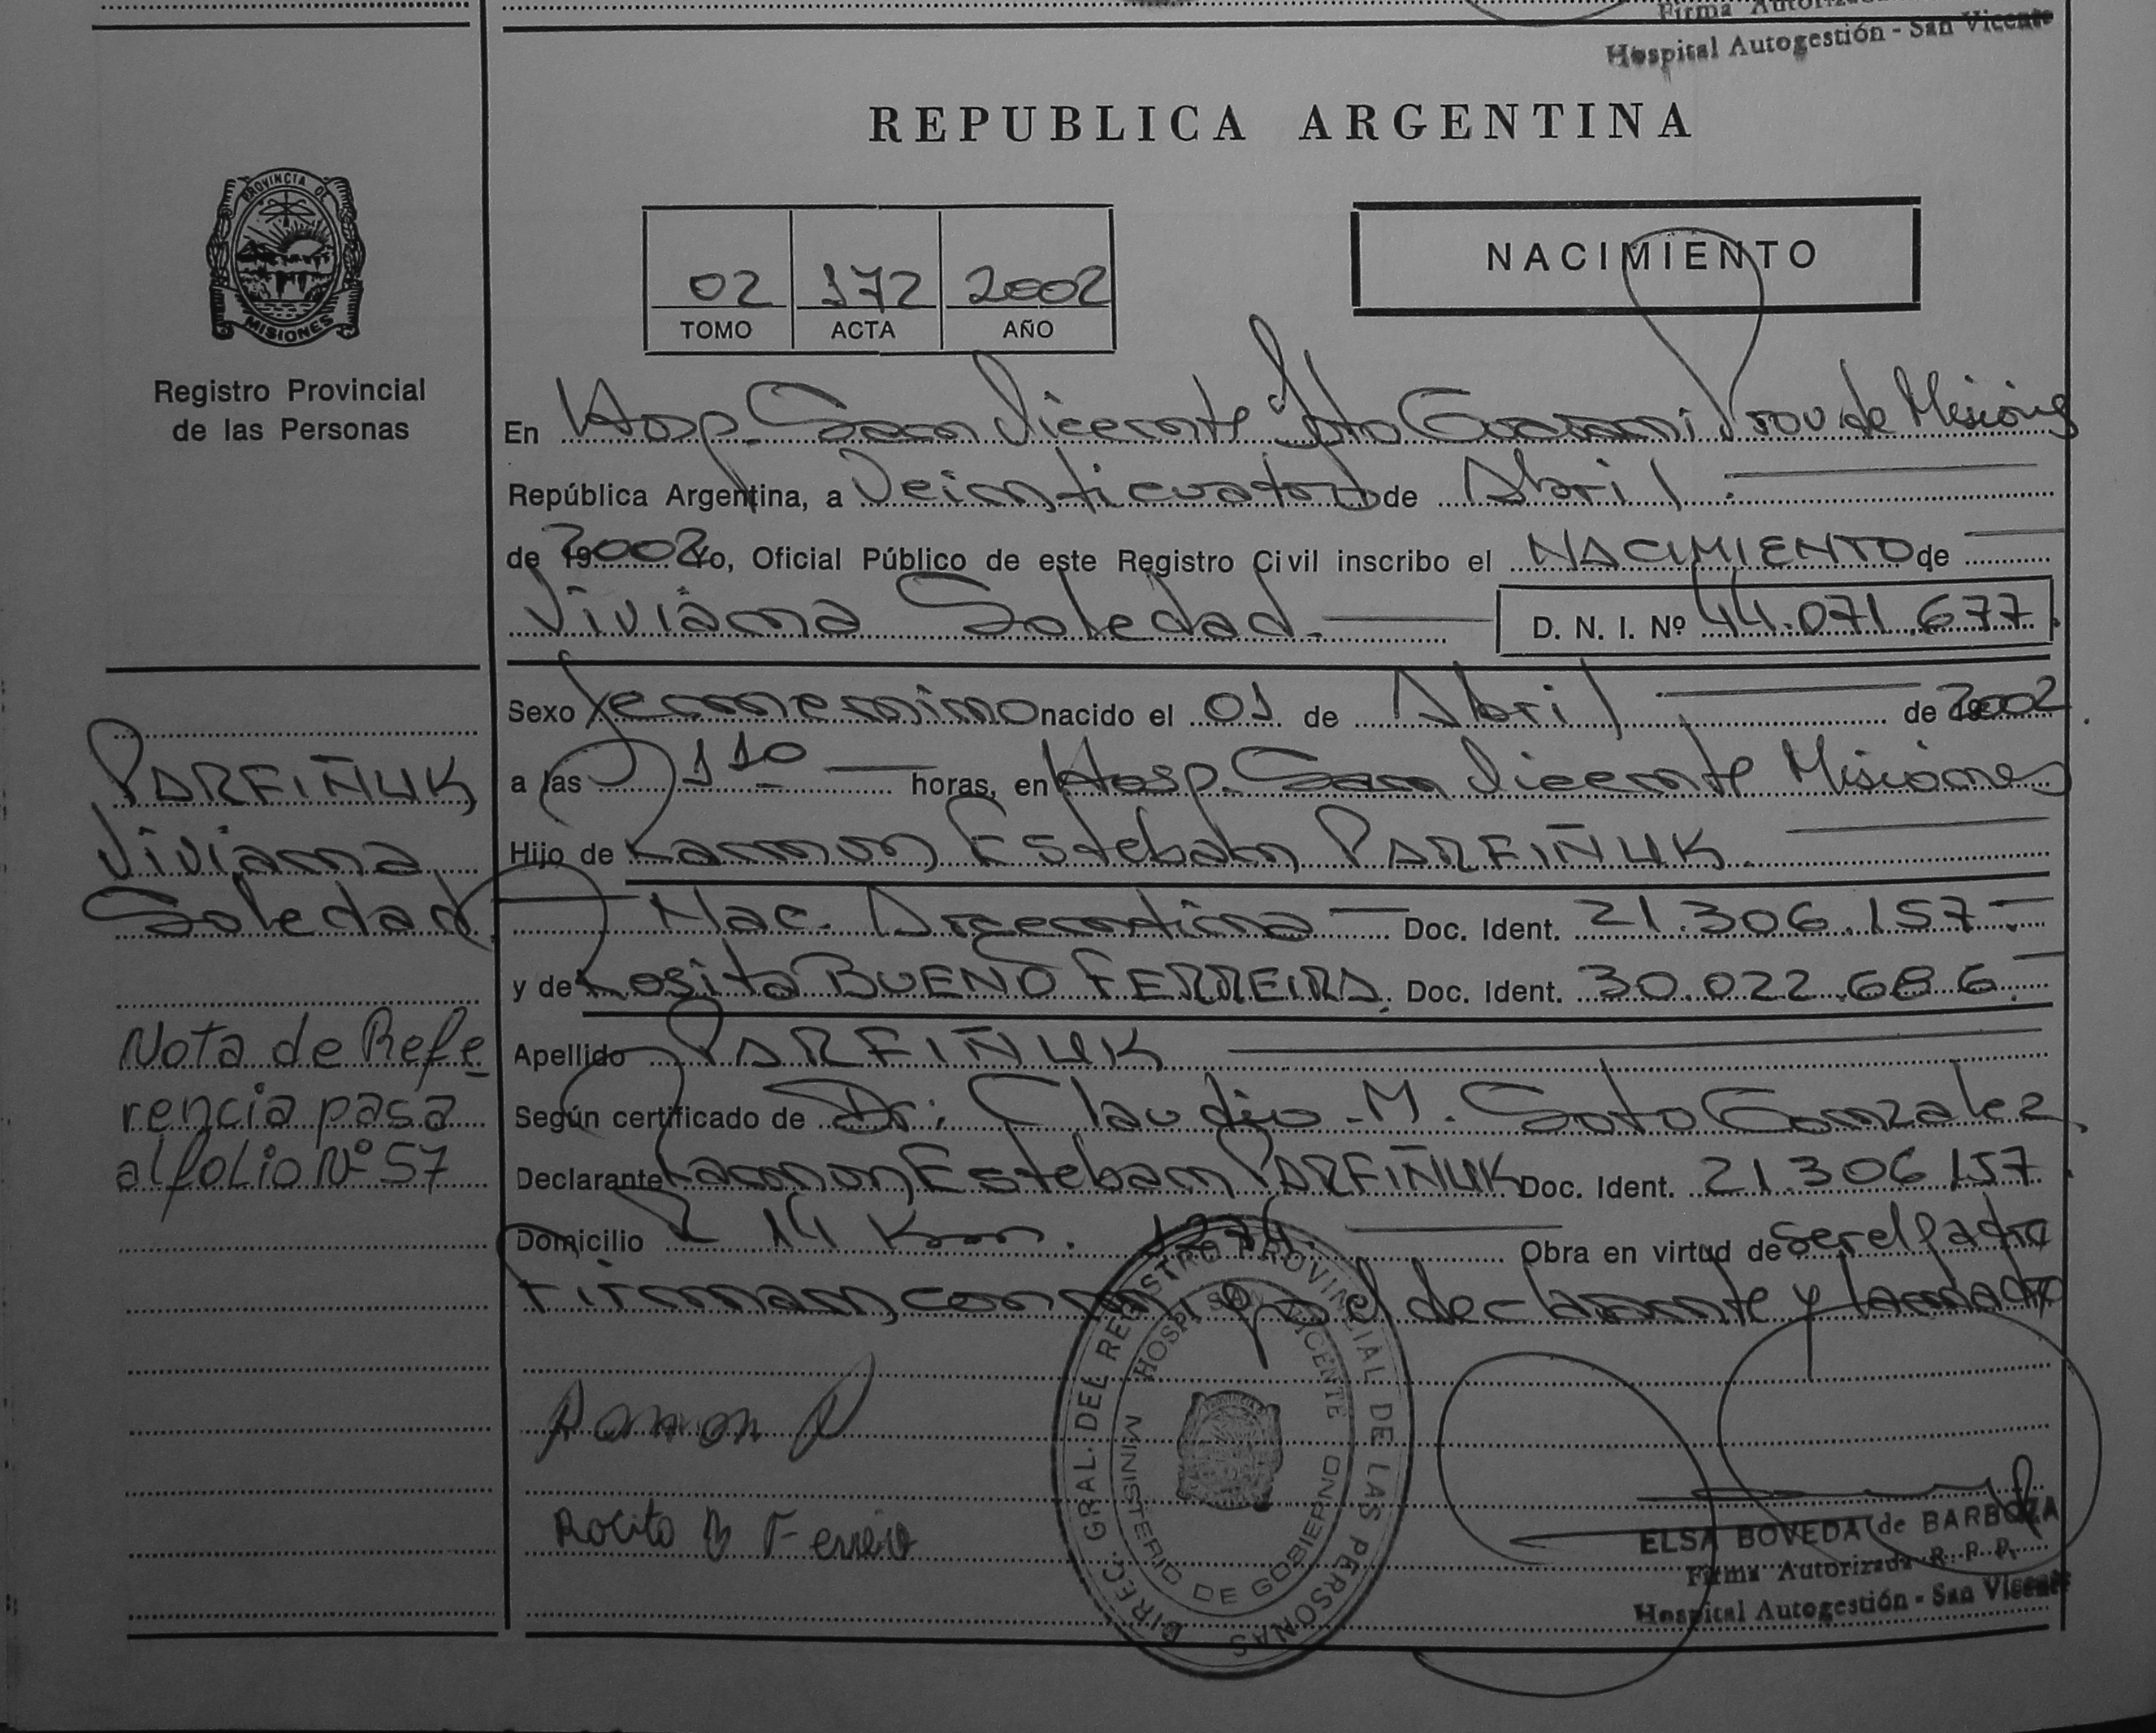 Firma Autoriz
Hospital Autogestión - San Vicente
REPUBLICA ARGENTINA
PROVINCIA DE MISIONES
Registro Provincial
de las Personas
02 172 2002
TOMO ACTA AÑO
NACIMIENTO
En Hosp. San Vicente Dto Guarani Prov de Misiones
República Argentina, a Veinticuatro de Abril
de 2002 Yo, Oficial Público de este Registro Civil inscribo el NACIMIENTO de
Viviana Soledad D. N. I. Nº 44.071.677
Sexo Femenino nacido el 01 de Abril de 2002
a las 1 10 horas, en Hosp. San Vicente Misiones
Hijo de Ramon Esteban PARFIÑUK
Nac. Argentina Doc. Ident. 21.306.157
y de Rosita BUENO FERREIRA. Doc. Ident. 30.022.686
Apellido PARFIÑUK
Según certificado de Dr: Claudio M. Soto Gonzalez
Declarante Ramon Esteban PARFIÑUK Doc. Ident. 21.306.157
Domicilio 14 Km. 1274. Obra en virtud de ser el padre
Firman, conmigo el declarante y la madre
PARFIÑUK
Viviana
Soledad
Nota de Refe
rencia pasa
al folio Nº 57
Ramon P
Rocito B Ferreio
DIREC. GRAL. DEL REGISTRO PROVINCIAL DE LAS PERSONAS
HOSP. SAN VICENTE
MINISTERIO DE GOBIERNO
ELSA BOVEDA de BARBOZA
Firma Autorizada R. P. P.
Hospital Autogestión - San Vicente